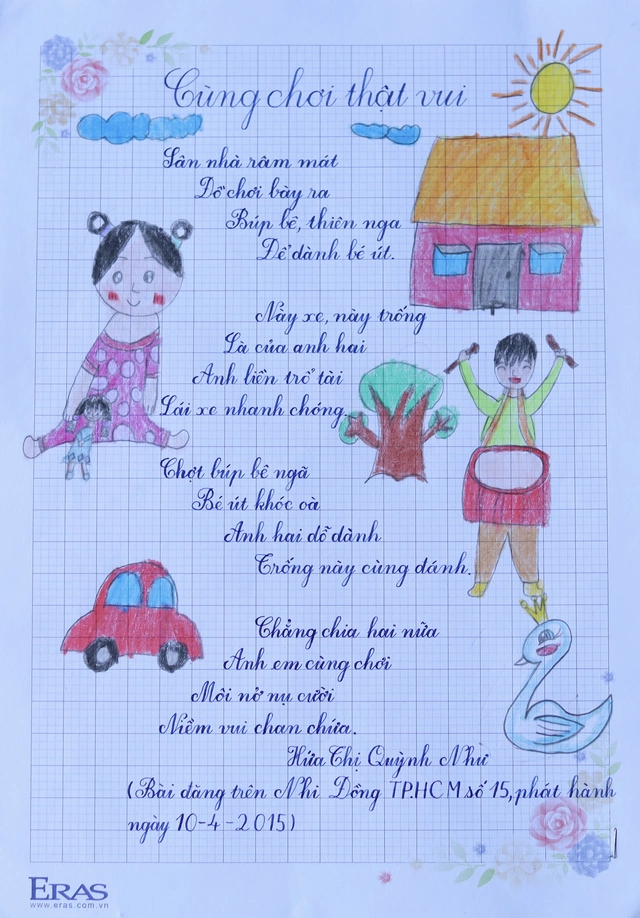 Cùng chơi thật vui
Sân nhà râm mát
Đồ chơi bày ra
Búp bê, thiên nga
Để dành bé út.
Nầy xe, này trống
Là của anh hai
Anh liền trổ tài
Lái xe nhanh chóng.
Chợt búp bê ngã
Bé út khóc oà
Anh hai dỗ dành
Trống này cùng đánh.
Chẳng chia hai nữa
Anh em cùng chơi
Môi nở nụ cười
Niềm vui chan chứa.
Hứa Thị Quỳnh Như
(Bài đăng trên Nhi Đồng TP.HCM số 15, phát hành
ngày 10-4-2015)
ERAS
www.eras.com.vn